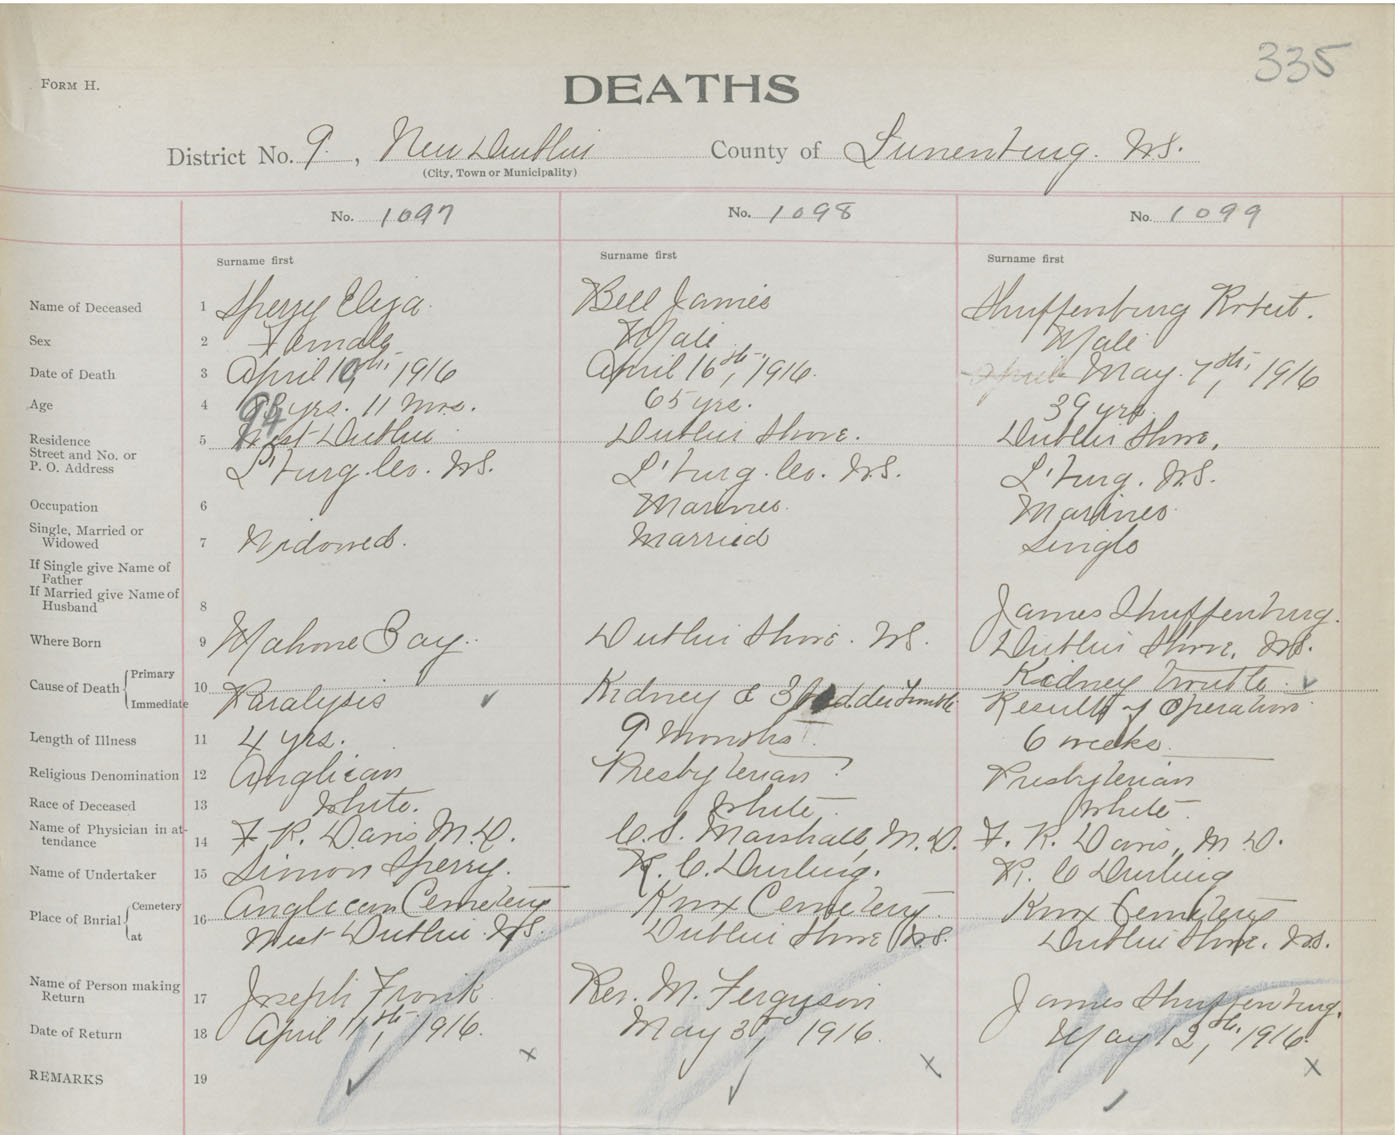 335
FORM H.
DEATHS
District No. 9, New Dublin County of Lunenburg. N.S.
(City, Town or Municipality)
No. 1097 No. 1098 No. 1099
Surname first Surname first Surname first
Name of Deceased 1 Sperry Eliza. Bell James Shuffenburg Robert.
Sex 2 Female Male Male
Date of Death 3 April 10th, 1916 April 16th, 1916. April May. 7th, 1916
Age 4 94 yrs. 11 Mos. 65 yrs. 39 yrs.
Residence 5 West Dublin Dublin Shore. Dublin Shore,
Street and No. or
P. O. Address L'burg. Co. N.S. L'burg. Co. N.S. L'burg. N.S.
Occupation 6 Mariner. Mariner
Single, Married or
Widowed 7 Widowed. Married Single
If Single give Name of
Father
If Married give Name of
Husband 8 James Shuffenburg.
Where Born 9 Mahone Bay. Dublin Shore. N.S. Dublin Shore, N.S.
Cause of Death { Primary 10 Kidney trouble.
Immediate Paralysis Kidney & Bladder Trouble Result of Operation
Length of Illness 11 4 yrs. 9 Months 6 weeks.
Religious Denomination 12 Anglican Presbyterian Presbyterian
Race of Deceased 13 White. White White
Name of Physician in at-
tendance 14 F. R. Davis M.D. C. S. Marshall, M.D. F. R. Davis, M.D.
Name of Undertaker 15 Simon Sperry. R. C. Durling. R. C Durling
Place of Burial { Cemetery 16 Anglican Cemetery Knox Cemetery. Knox Cemetery
at West Dublin. N.S. Dublin Shore N.S. Dublin Shore. N.S.
Name of Person making
Return 17 Joseph Fronk Rev. M. Ferguson James Shuffenburg.
Date of Return 18 April 11th, 1916. May 3, 1916. May 12th, 1916.
REMARKS 19